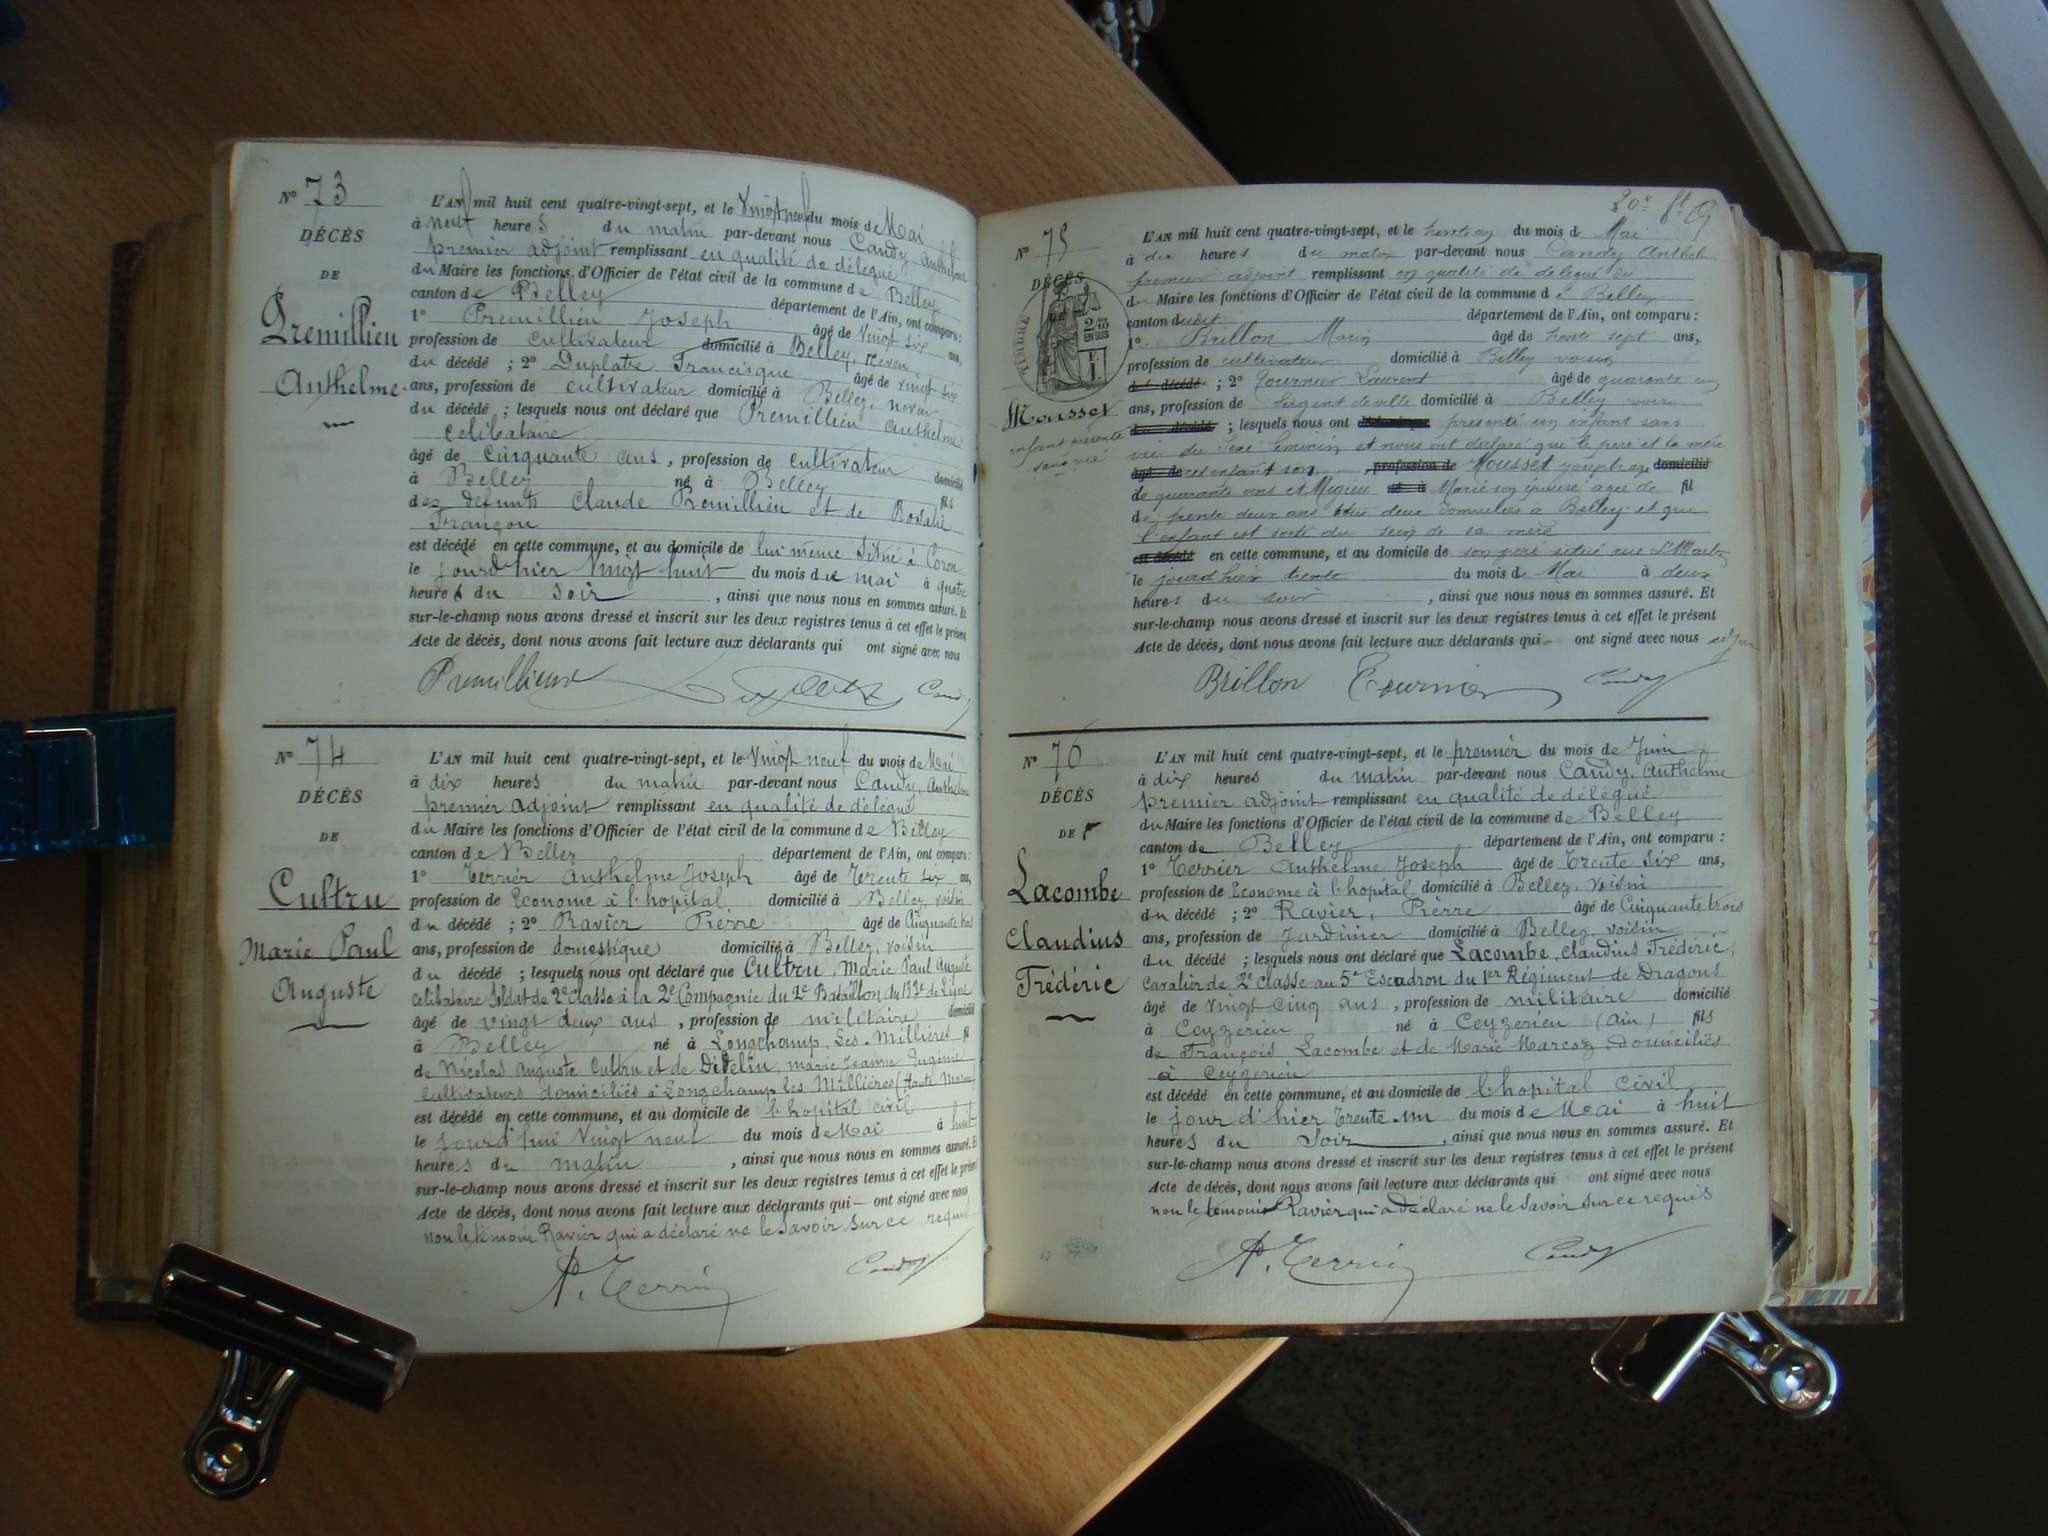 N° 73
DÉCÈS
DE
Premillieu
Anthelme
L'AN mil huit cent quatre-vingt-sept, et le Vingt neuf du mois de Mai
à neuf heures du matin par-devant nous Candy Anthelme
premier adjoint remplissant en qualité de délégué
du Maire les fonctions d'Officier de l'état civil de la commune de Belley
canton de Belley département de l'Ain, ont comparu :
1° Premillieu Joseph âgé de Vingt six ans,
profession de cultivateur domicilié à Belley, neveu
du décédé ; 2° Duplatre Francisque âgé de vingt six
ans, profession de cultivateur domicilié à Belley, neveu
du décédé ; lesquels nous ont déclaré que Premillieu Anthelme
célibataire
âgé de cinquante ans, profession de cultivateur domicilié
à Belley né à Belley fils
des défunts Claude Premillieu et de Rosalie
Françon
est décédé en cette commune, et au domicile de lui même situé à Coron
le jourd'hier vingt huit du mois de mai à quatre
heures du soir, ainsi que nous nous en sommes assuré. Et
sur-le-champ nous avons dressé et inscrit sur les deux registres tenus à cet effet le présent
Acte de décès, dont nous avons fait lecture aux déclarants qui ont signé avec nous
Premillieux Candy
N° 74
DÉCÈS
DE
Cultru
Marie Paul
Auguste
L'AN mil huit cent quatre-vingt-sept, et le Vingt neuf du mois de Mai
à dix heures du matin par-devant nous Candy, Anthelme
premier adjoint remplissant en qualité de délégué
du Maire les fonctions d'Officier de l'état civil de la commune de Belley
canton de Belley département de l'Ain, ont comparu :
1° Terrier Anthelme Joseph âgé de Trente six ans,
profession de Econome à l'hopital domicilié à Belley, voisin
du décédé ; 2° Ravier Pierre âgé de Cinquante trois
ans, profession de domestique domicilié à Belley, voisin
du décédé ; lesquels nous ont déclaré que Cultru, Marie Paul Auguste
célibataire Soldat de 2e classe à la 2e Compagnie du 2e Bataillon du 133e de Ligne
âgé de vingt deux ans, profession de militaire domicilié
à Belley né à Longchamp les Millières fil
de Nicolas Auguste Cultru et de Didelin, marie Jeanne Eugénie
cultivateurs domiciliés à Longchamp les Millières (Haute Marne
est décédé en cette commune, et au domicile de l'hopital civil
le jourd'hui Vingt neuf du mois de Mai à huit
heures du matin, ainsi que nous nous en sommes assuré. Et
sur-le-champ nous avons dressé et inscrit sur les deux registres tenus à cet effet le présent
Acte de décès, dont nous avons fait lecture aux déclarants qui — ont signé avec nous
non le témoin Ravier qui a déclaré ne le savoir sur ce requis
A. Terrier Candy
N° 75
DÉCÈS
TIMBRE
2/10 EN SUS
Mousset
enfant présenté
sans vie
L'AN mil huit cent quatre-vingt-sept, et le trente un du mois de Mai
à dix heures du matin par-devant nous Candy Anthelme
premier adjoint remplissant en qualité de délégué du
du Maire les fonctions d'Officier de l'état civil de la commune de Belley
canton dudit département de l'Ain, ont comparu :
1° Brillon Marin âgé de trente sept ans,
profession de cultivateur domicilié à Belley voisin
du décédé ; 2° Tournier Laurent âgé de quarante un
ans, profession de Sergent de ville domicilié à Belley voisin
du décédé ; lesquels nous ont présenté un enfant sans
vie du Sexe féminin et nous ont déclaré que le père et la mère
âgé de cet enfant son profession de Mousset Joseph age domicilié
de quarante ans et Megieu né à Marie son épouse agée de fil
de trente deux ans tous deux domiciliés à Belley et que
l'enfant est sorti du sein de sa mère
est décédé en cette commune, et au domicile de son père situé rue St Martin
le jourd'hier trente du mois de Mai à deux
heures du soir, ainsi que nous nous en sommes assuré. Et
sur-le-champ nous avons dressé et inscrit sur les deux registres tenus à cet effet le présent
Acte de décès, dont nous avons fait lecture aux déclarants qui — ont signé avec nous
Brillon Tournier Candy
N° 76
DÉCÈS
DE
Lacombe
Claudius
Frédéric
L'AN mil huit cent quatre-vingt-sept, et le premier du mois de Juin
à dix heures du matin par-devant nous Candy, Anthelme
premier adjoint remplissant en qualité de délégué
du Maire les fonctions d'Officier de l'état civil de la commune de Belley
canton de Belley département de l'Ain, ont comparu :
1° Terrier Anthelme Joseph âgé de Trente Six ans,
profession de Econome à l'hopital domicilié à Belley, voisin
du décédé ; 2° Ravier, Pierre âgé de Cinquante trois
ans, profession de Jardinier domicilié à Belley, voisin
du décédé ; lesquels nous ont déclaré que Lacombe, Claudius Frédéric,
Cavalier de 2e classe au 5e Escadron du 1er Régiment de Dragons
âgé de vingt cinq ans, profession de militaire domicilié
à Ceyzerieu né à Ceyzerieu (Ain) fils
de François Lacombe et de Marie Marcoz domiciliés
à Ceyzerieu
est décédé en cette commune, et au domicile de l'hopital civil
le jour d'hier Trente un du mois de Mai à huit
heures du Soir, ainsi que nous nous en sommes assuré. Et
sur-le-champ nous avons dressé et inscrit sur les deux registres tenus à cet effet le présent
Acte de décès, dont nous avons fait lecture aux déclarants qui ont signé avec nous
non le témoin Ravier qui a déclaré ne le savoir sur ce requis
A. Terrier Candy